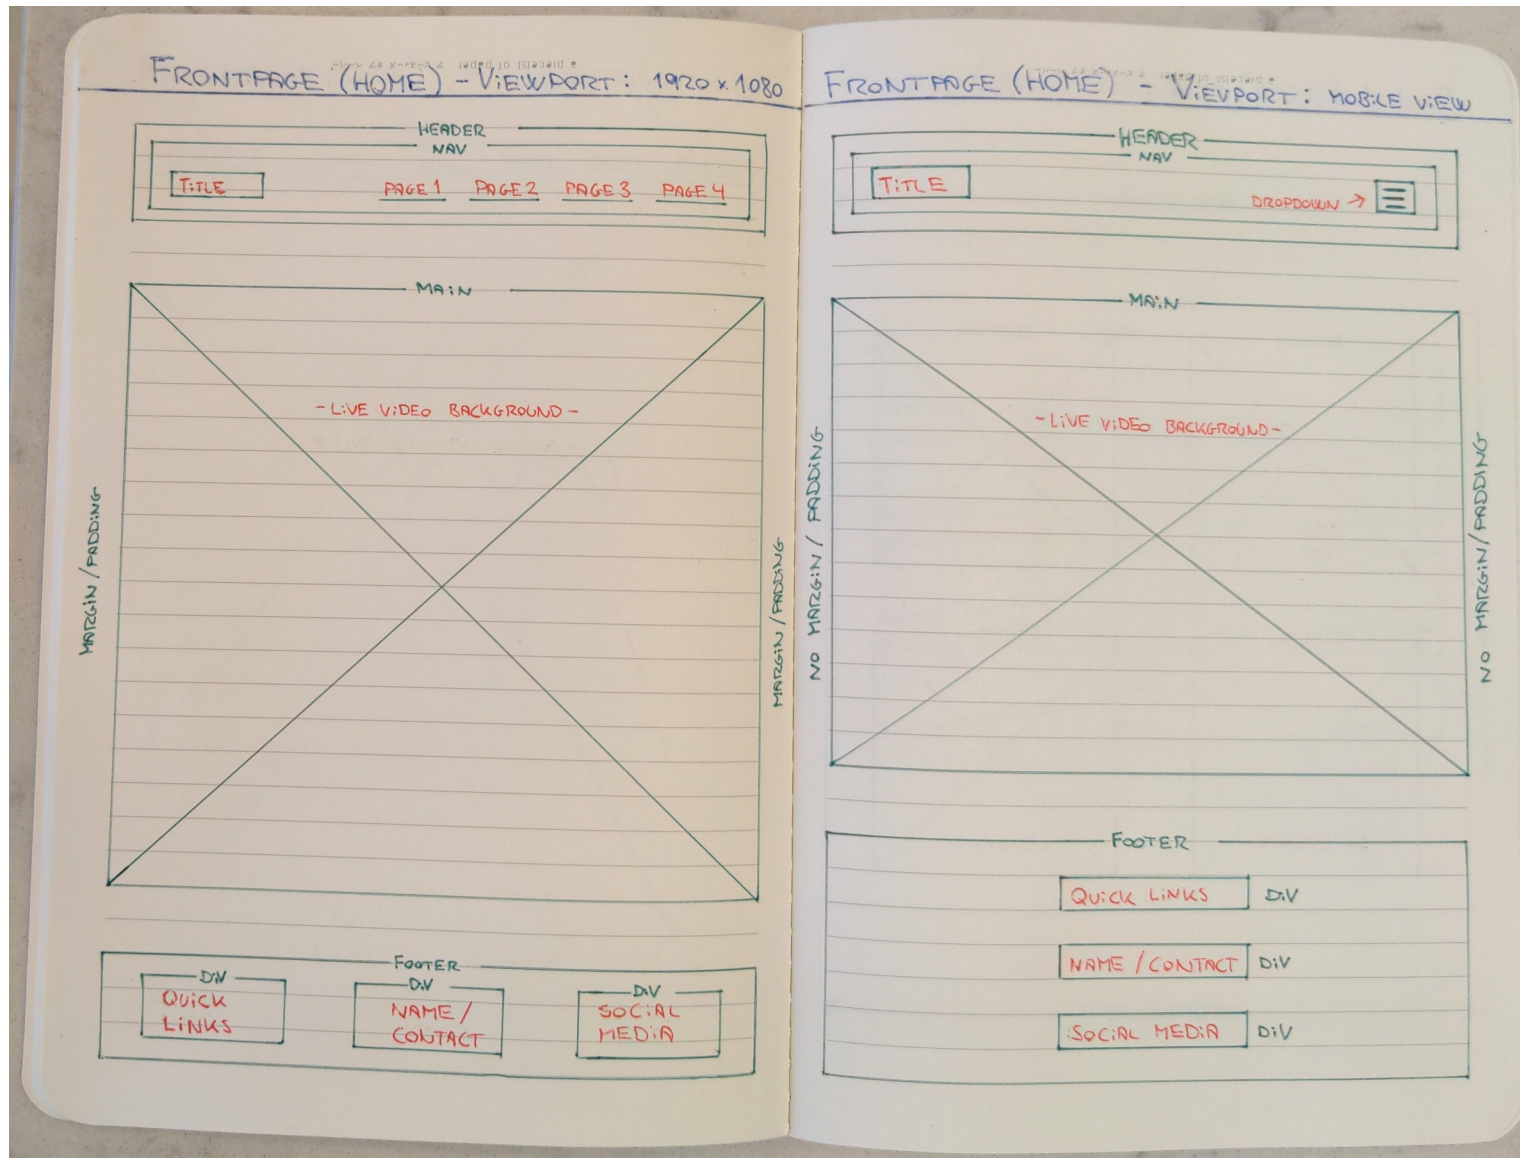 FRONTPAGE (HOME) - ViEWPORT: 1920 x 1080
HEADER
NAV
TiTLE PAGE 1 PAGE 2 PAGE 3 PAGE 4
MAiN
- LiVE ViDEO BACKGROUND -
MARGiN / PADDiNG
MARGiN / PADDiNG
FOOTER
DiV
QUiCK
LiNKS
DiV
NAME /
CONTACT
DiV
SOCiAL
MEDiA
FRONTPAGE (HOME) - ViEVPORT: MOBiLE ViEW
HEADER
NAV
TiTLE
DROPDOWN →
MAiN
- LiVE ViDEO BACKGROUND -
NO MARGiN / PADDiNG
NO MARGiN / PADDiNG
FOOTER
QUiCK LiNKS DiV
NAME / CONTACT DiV
SOCiAL MEDiA DiV